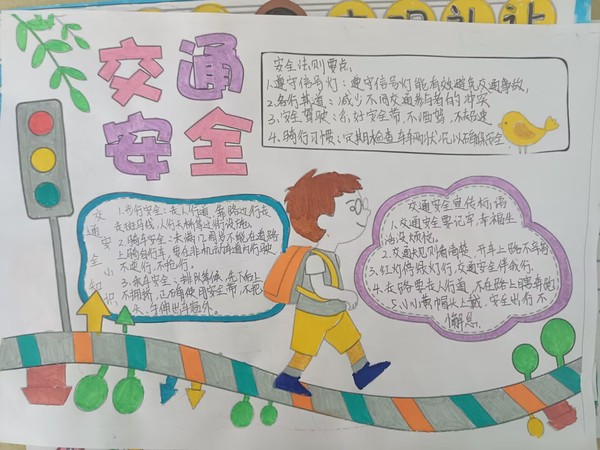 交通
安全
安全法则要点:
1.遵守信号灯:遵守信号灯能有效避免交通事故,
2.各行其道:减少不同交通参与者的冲突
3.安全驾驶:系好安全带,不酒驾,不超速
4.骑行习惯:定期检查车辆状况以确保安全
交通安全小知识
1.步行安全:走人行道,靠路边行走
走斑马线,人行天桥等过街设施。
2.骑车安全:未满12周岁不能在道路
上骑自行车,要在非机动车道内行驶
不逆行、不抢行。
3.乘车安全:排队等候,先下后上
不拥挤,正确使用安全带,不把
头、手伸出车窗外。
交通安全宣传标语
1.交通安全要记牢,幸福生
活没烦恼。
2.交通法规看清楚,开车上路不
3.红灯停绿灯行,交通安全伴我行。
4.走路要走人行道,不在路上
5.小小黄帽头上戴,安全出行不
懈怠。